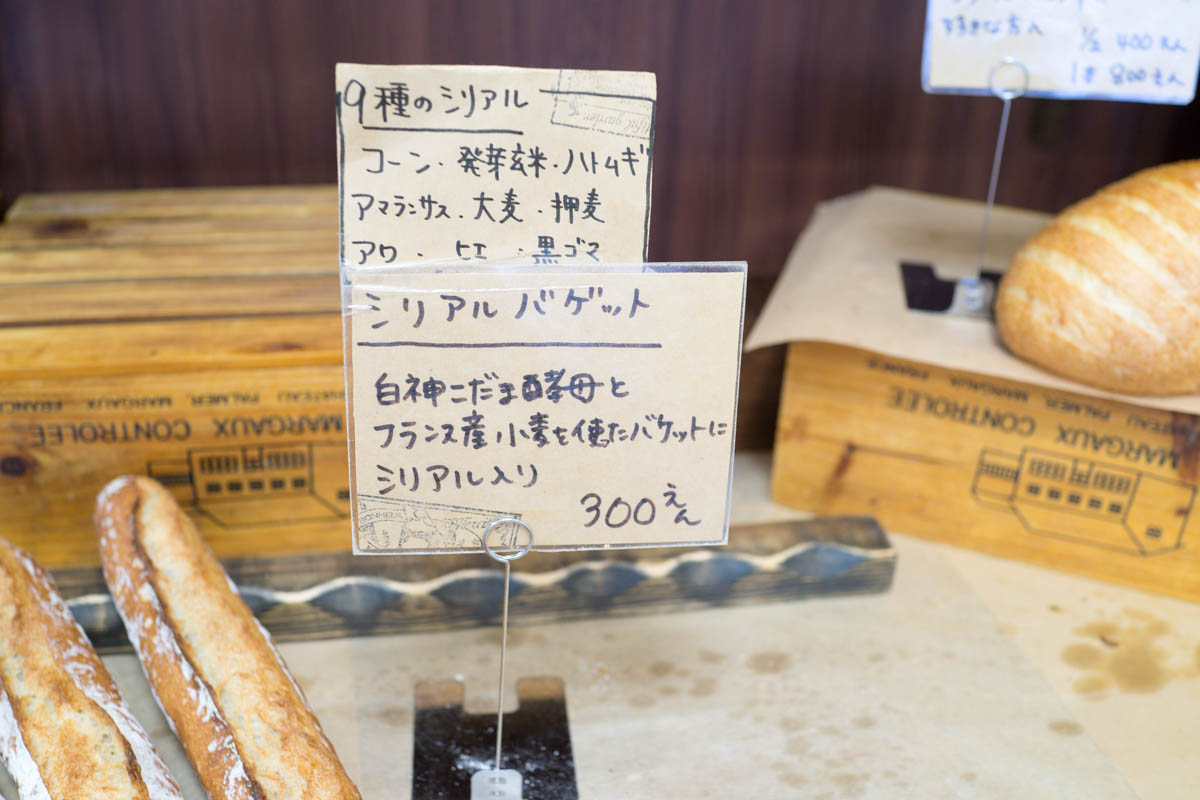 9種のシリアル
コーン・発芽玄米・ハトムギ
アマランサス・大麦・押麦
アワ・ヒエ・黒ゴマ
シリアルバゲット
白神こだま酵母と
フランス産小麦を使たバゲットに
シリアル入り
300えん
1/2 400えん
1ヶ 800えん
CHATEAU PALMER, MARGAUX FRANCE
MARGAUX CONTROLEE
CHATEAU PALMER, MARGAUX FRANCE
MARGAUX CONTROLEE